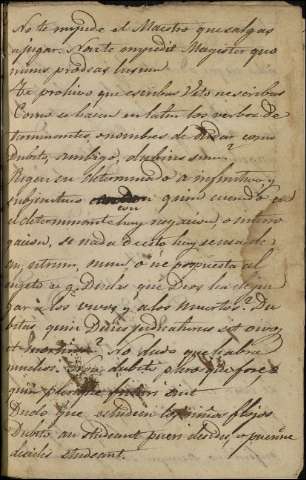 No te impide el Maestro que salgas
a jugar. Non te impedit Magister quo
minus prodeas lusum
Te prohivo que escribas Veto ne scribas
Como se hacen en latin los verbos de
terminantes o nombres de dudar como
Dubito, ambigo, dubius sum?
Rigen su determinado a infinitivo, y
subjuntivo con quin cuando en
el determinante hay negacion o interro
gacion, si nada de esto hay se usa de
an, utrum, num, o ne pospuesta al
sugeto v. g. Dudas que Dios ha de juz
gar a los vivos y a los muertos? Du
bitas, quin Deus judicaturus sit vivos
et mortuos? No dudo que habra
muchos. Non dubito, plures fore,
quin plures futuri sint
Dudo que estudien los niños flojos
Dubito an studeant pueri desides, o puerine
desides studeant.